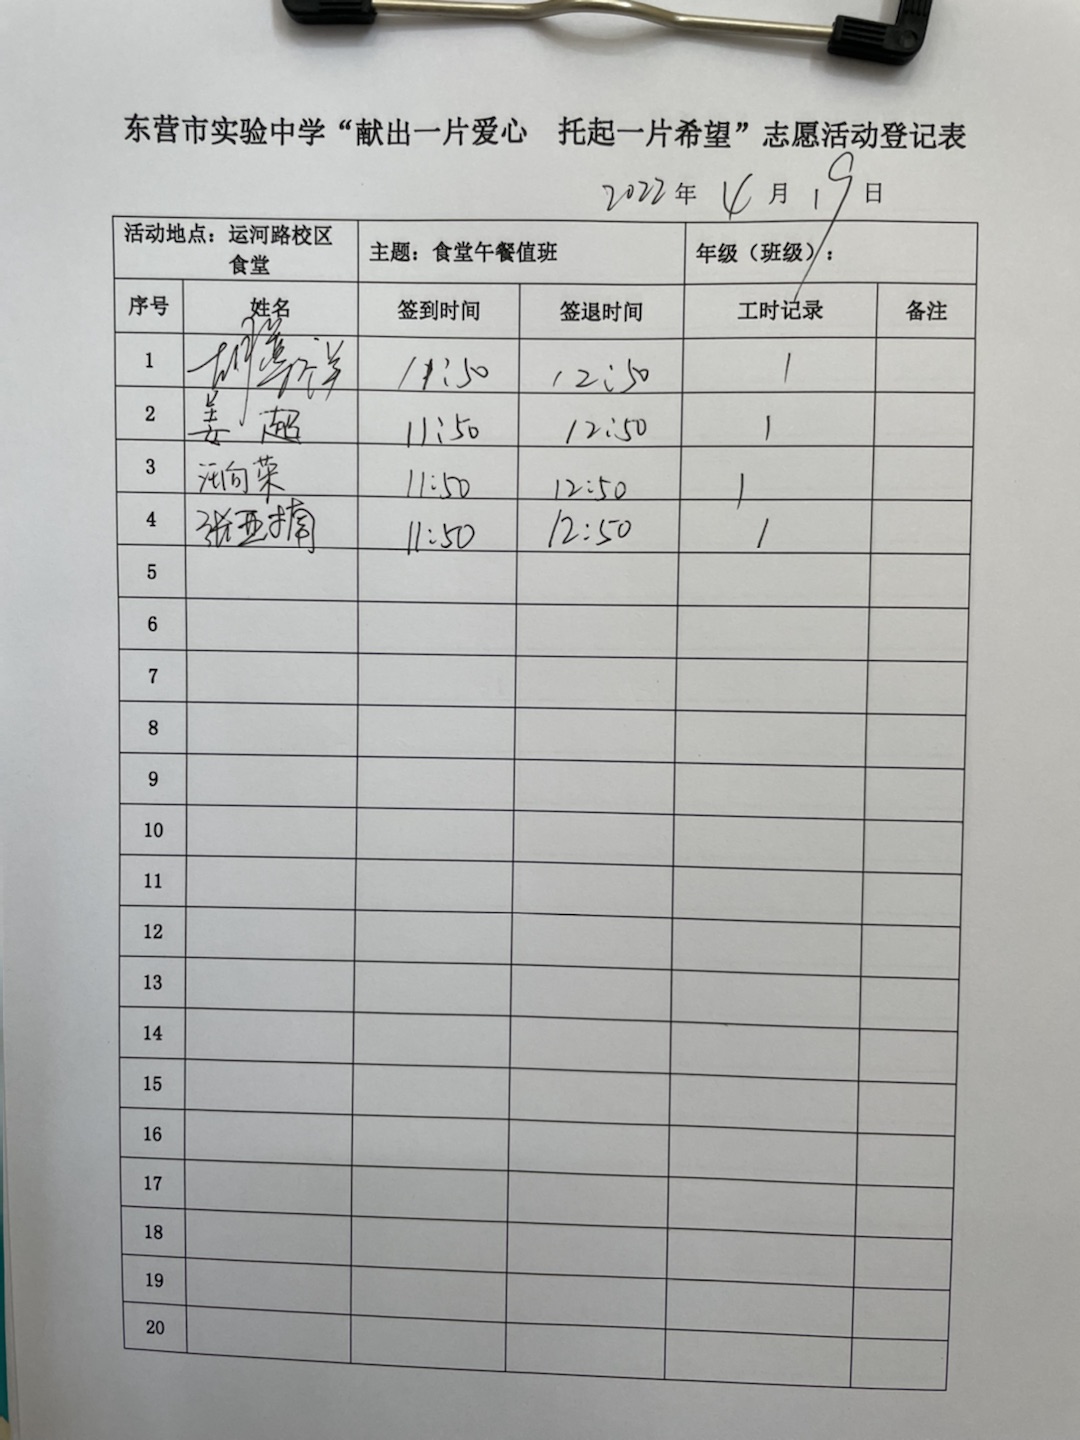 东营市实验中学“献出一片爱心　托起一片希望”志愿活动登记表
2022年 4月 19日
活动地点：运河路校区食堂 主题：食堂午餐值班 年级（班级）：
序号 姓名 签到时间 签退时间 工时记录 备注
1 11:50 12:50 1
2 姜超 11:50 12:50 1
3 汪向荣 11:50 12:50 1
4 张亚楠 11:50 12:50 1
5
6
7
8
9
10
11
12
13
14
15
16
17
18
19
20